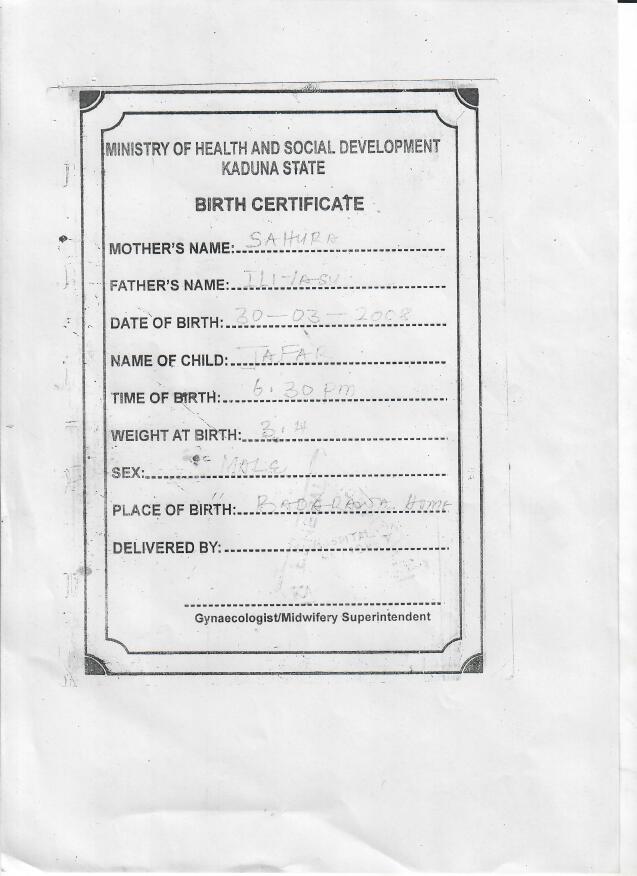 MINISTRY OF HEALTH AND SOCIAL DEVELOPMENT
KADUNA STATE
BIRTH CERTIFICATE
MOTHER'S NAME: SAHURA
FATHER'S NAME: ILIYASU
DATE OF BIRTH: 30-03-2008
NAME OF CHILD: JAFAR
TIME OF BIRTH: 6.30 pm
WEIGHT AT BIRTH: 3.4
SEX: MALE
PLACE OF BIRTH: HOME
DELIVERED BY:
HOSPITAL
Gynaecologist/Midwifery Superintendent